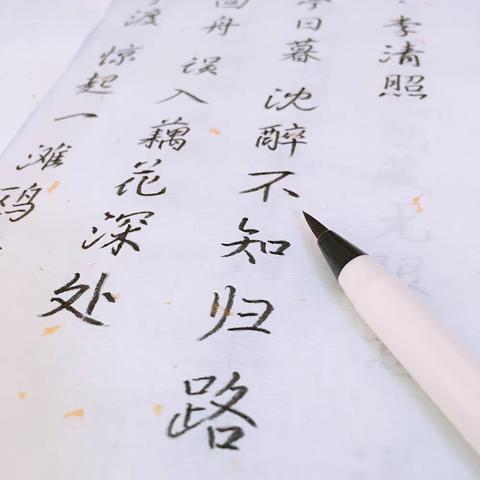 ·李清照
亭日暮 沈醉不知归路
回舟 误入藕花深处
渡 惊起一滩鸥